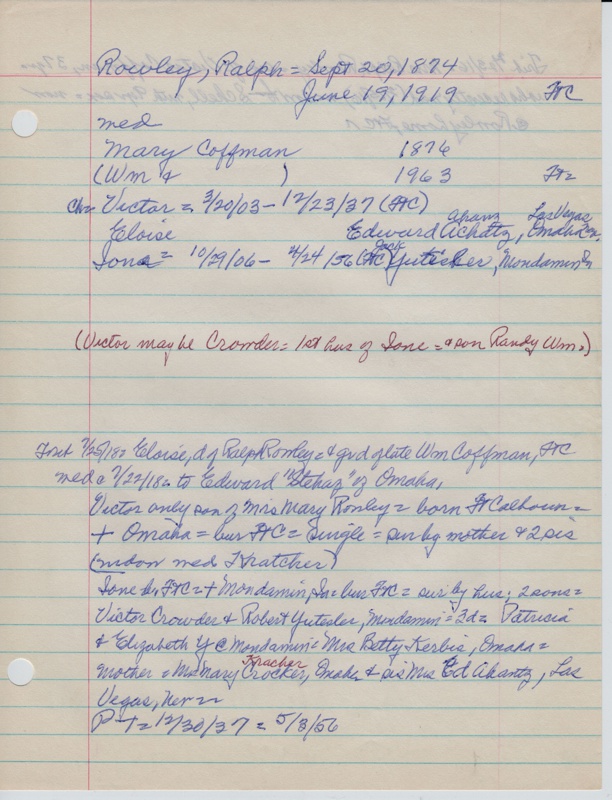 Rowley, Ralph = Sept 20, 1874
June 19, 1919 FtC
med
Mary Coffman 1876
(Wm + ) 1963 Ft =
Ch = Victor = 3/20/03 - 12/23/37 (FtC)
Ahanz Las Vegas
Eloise Edward Achatz, Omaha
Jack
Ione = 10/29/06 - 4/24/56 (FtC) Yutesler, Mondamin
(Victor may be Crowder = 1st hus of Ione = + son Randy Wm.)
7/25/18 = Eloise, d of Ralph Rowley = + grd of late Wm Coffman, FtC
med @ 7/22/18 = to Edward of Omaha,
Victor only son of Mrs Mary Rowley = born Ft Calhoun =
+ Omaha = bur FtC = single = sur by mother & 2 sis
(widow med Kratcher)
Ione br FtC = + Mondamin, Ia = bur FtC = sur by hus; 2 sons =
Victor Crowder & Robert Yutesler, Mondamin = 2d = Patricia
& Elizabeth Y @ Mondamin = Mrs Betty Kerbis, Omaha =
Kracher
mother = Mrs Mary Crocker, Omaha & sis Mrs Ed Ahantz, Las
Vegas, Nev
P-T = 12/30/37 = 5/3/56